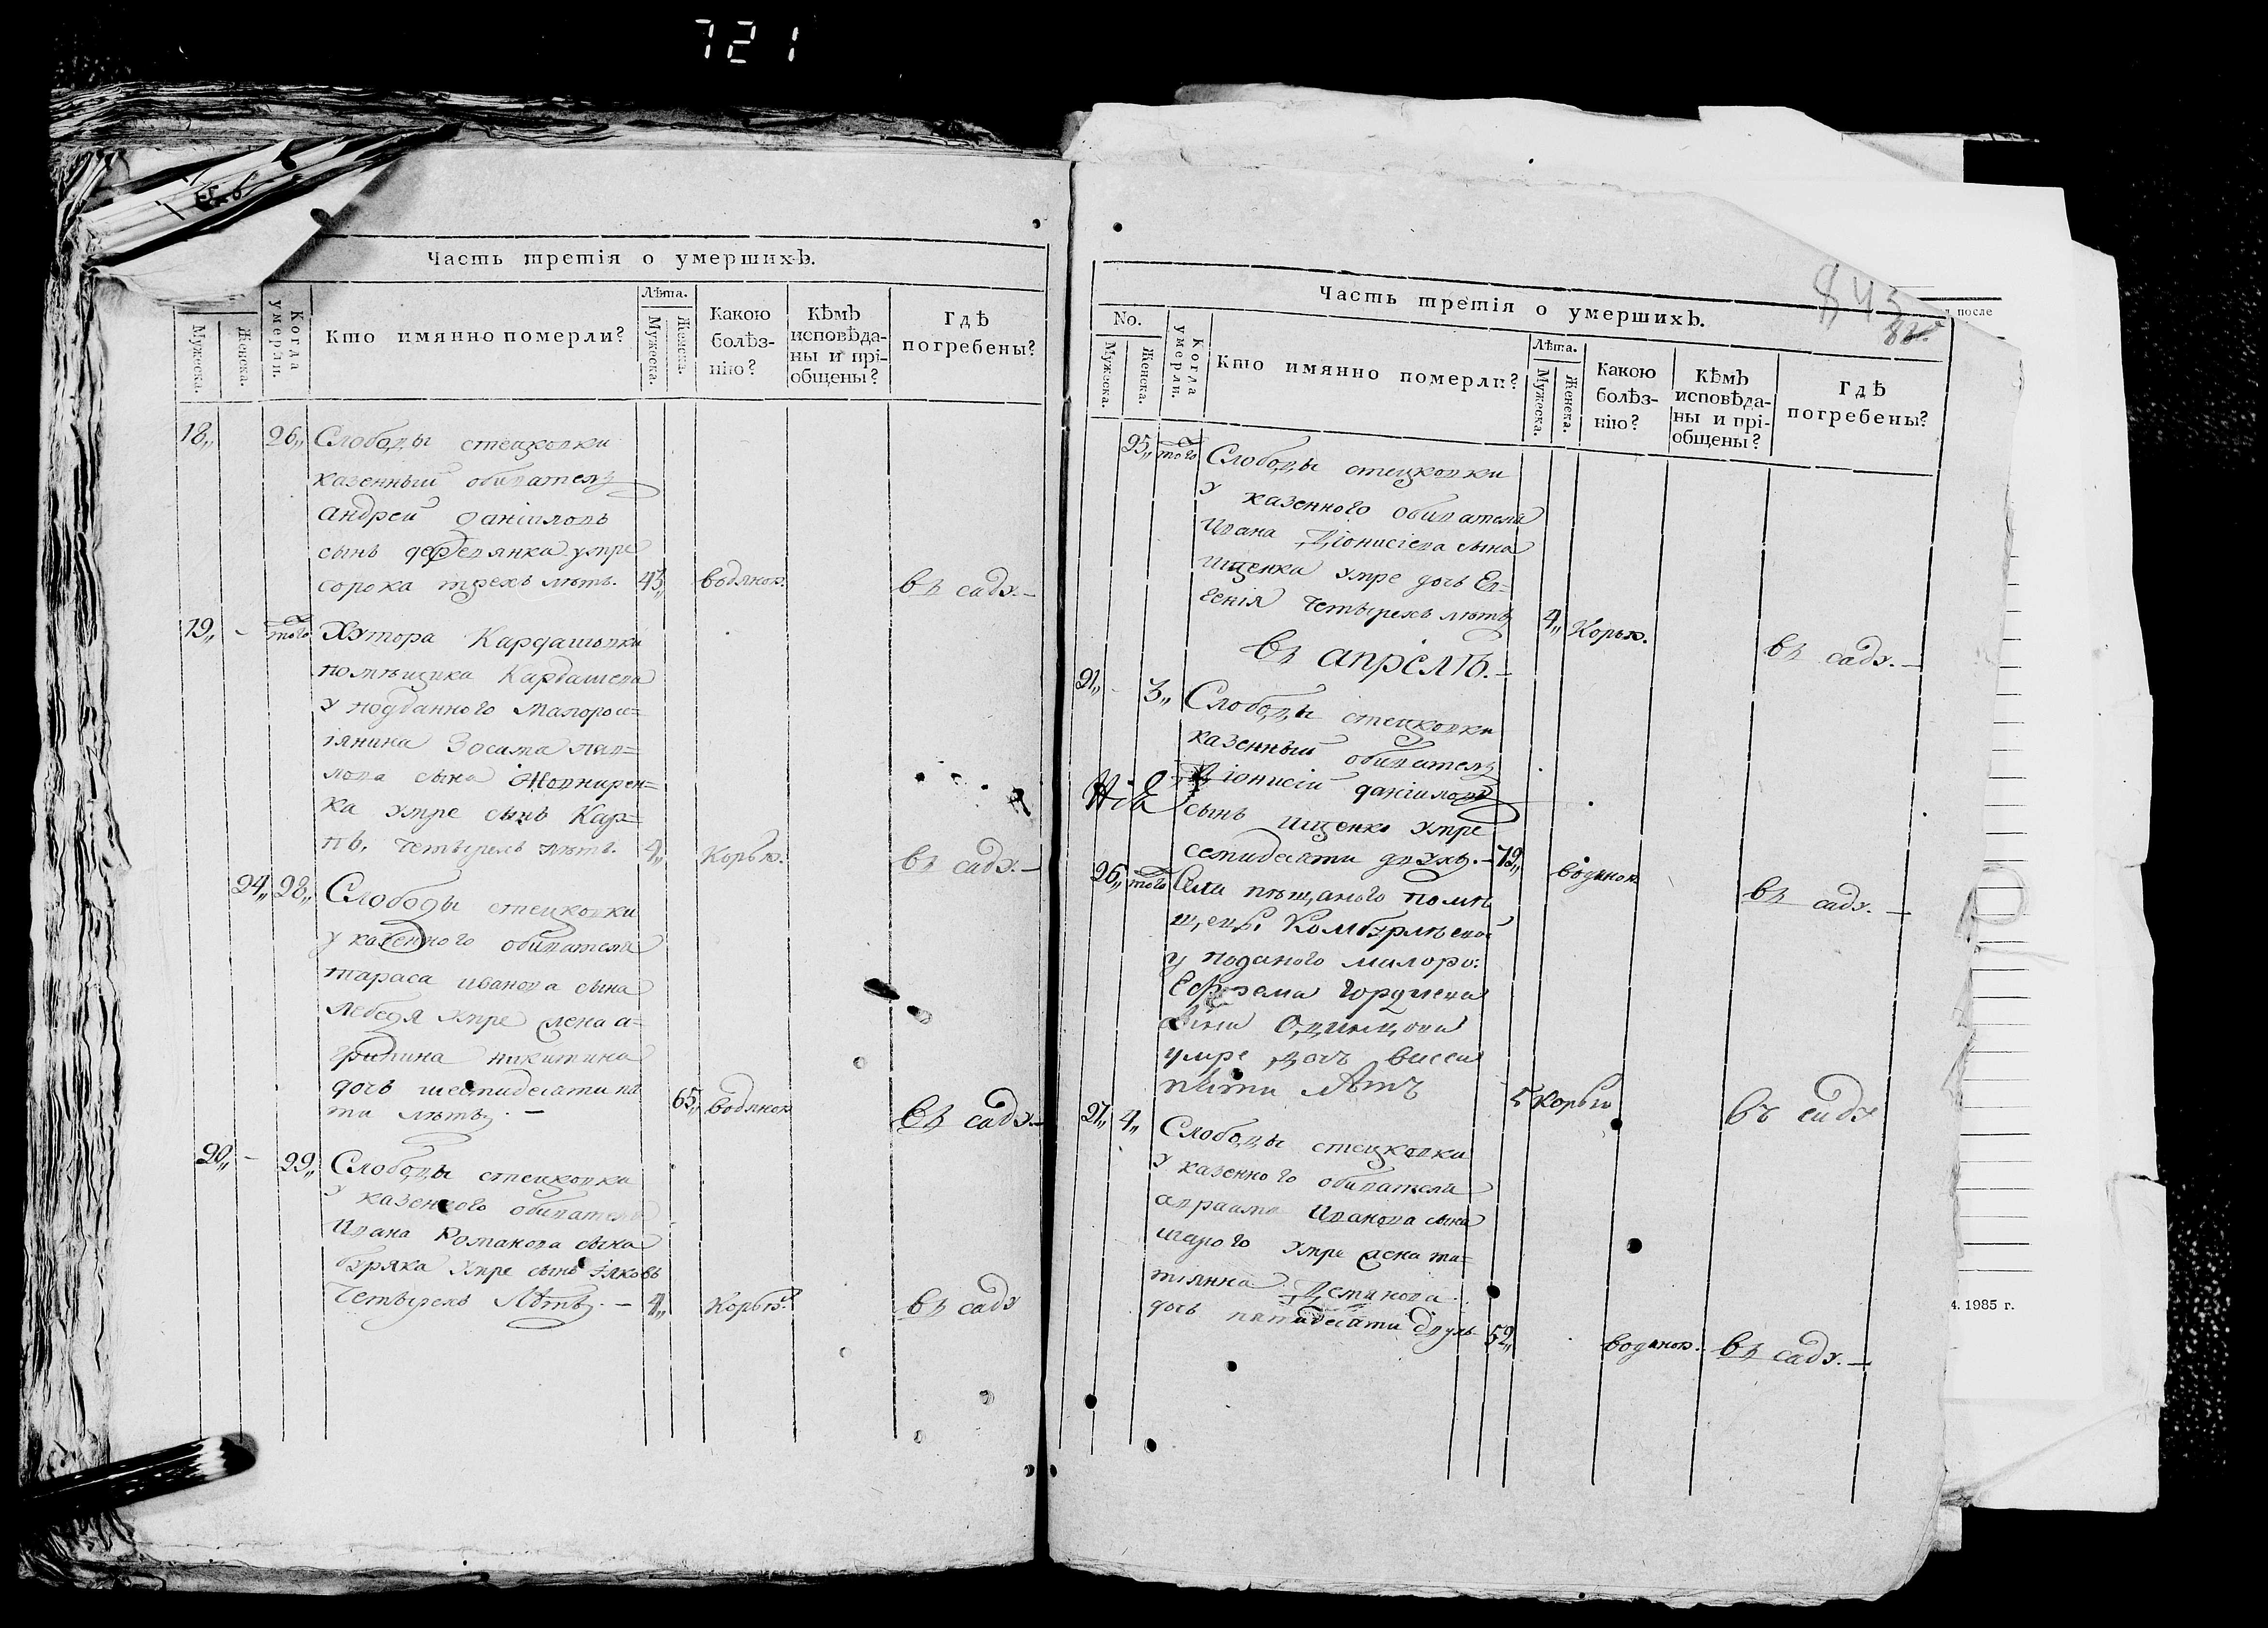 721
Часть третія о умершихъ.
Мужеска.
Женска.
Когда умерли.
Кто имянно померли?
Лѣта.
Мужеска.
Женска.
Какою болѣз-
нію?
Кѣмъ
исповѣда-
ны и прі-
общены?
Гдѣ
погребены?
18,, 26,, Слободы стецковки
казенный обиватель
андрей даніиловъ
сынъ деревянка умре
сорока трехъ лѣтъ. 43,, водяною. въ саду.—
19,, - того Хутора Кардашовки
помѣщика Кардашева
у подданного Малоросс=
іянина Зосима пав=
лова сына Жовнирен=
ка умре сынъ Кар=
пъ, четырехъ лѣтъ. 4,, Корью. въ саду.—
24,, 28,, Слободы стецковки
у казенного обивателя
тараса иванова сына
лебедя умре жена а=
грипина никитина
дочь шестидесати пя
ти лѣтъ. — 65,, водяною въ саду.—
20,, - 29,, Слободы стецковки
у казенного обивателя
Ивана Романова сына
буряка умре сынъ іяковъ
четырехъ лѣтъ. — 4,, Корью. въ саду
Часть третія о умершихъ.
845
No.
Мужеска.
Женска.
Когда умерли.
Кто имянно померли?
Лѣта.
Мужеска.
Женска.
Какою
болѣз-
нію?
Кѣмъ
исповѣда-
ны и прі-
общены?
Гдѣ
погребены?
25,, того Слободы стецковки
у казенного обивателя
Ивана Діонисіева сына
ищенка умре дочь Ев-
генія четырехъ лѣтъ 4,, Корью. въ саду.—
въ апрелѣ.—
21,, - 3,, Слободы стецковки
казенный обиватель
Діонисій даніиловъ
сынъ ищенко умре
семидесати двухъ.— 72,, водяною въ саду.—
26,, того Села пѣщаного помѣ
щицы Комбурлѣевой
у поданого малоро:
Ефрема
сына Одинцова
умре дочь
пяти лѣтъ 5 корью въ саду
27,, 4,, Слободы стецковки
у казенного обивателя
авраама Иванова сына
шарого умре жена та=
тіянна Демянова
дочь пятидесати двухъ 52,, водяною. въ саду.—
после
4. 1985 г.